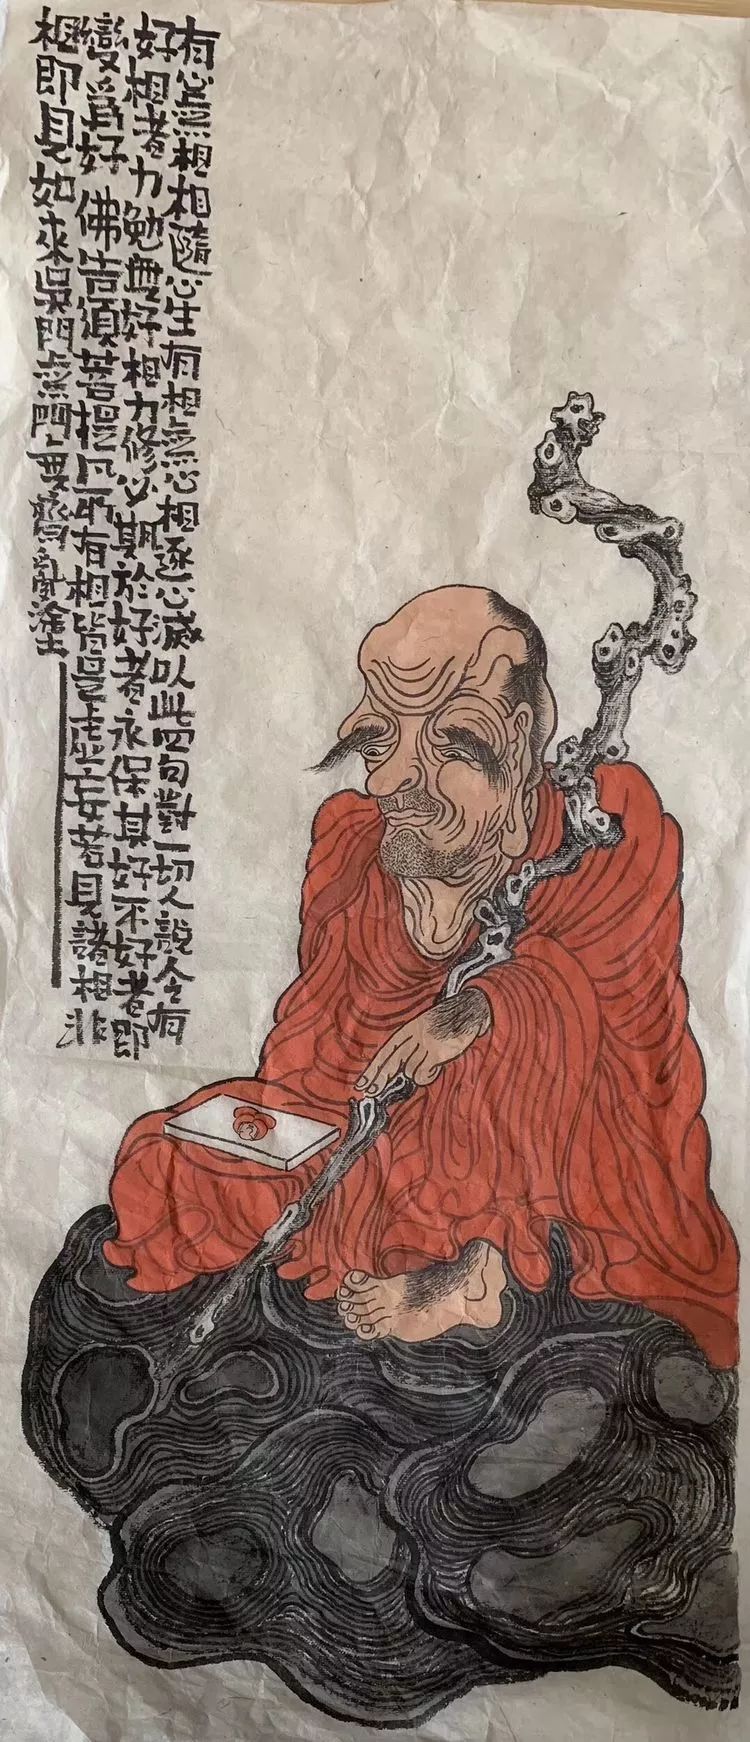 有心無相相隨心生有相無心相逐心滅以此四句對一切人說令有
好相者力勉無好相力修必期於好者永保其好不好者即
變爲好佛告須菩提凡所有相皆是虛妄若見諸相非
相即見如來吳門無門亂塗